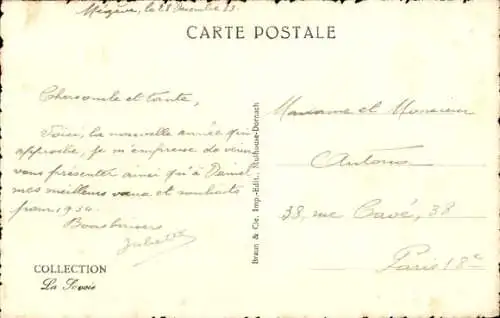 Megève, le 28 Décembre 33.
CARTE POSTALE
Cher oncle et tante,
Voici, la nouvelle année qui
approche, je m'empresse de venir
vous présenter ainsi qu'à Daniel
mes meilleurs vœux et souhaits
pour 1934.
Bons baisers
Juliette
COLLECTION
La Savoie
Braun & Cie, Imp.-Edit., Mulhouse-Dornach
Madame et Monsieur
Antonio
38, rue Cavé, 38
Paris 18e